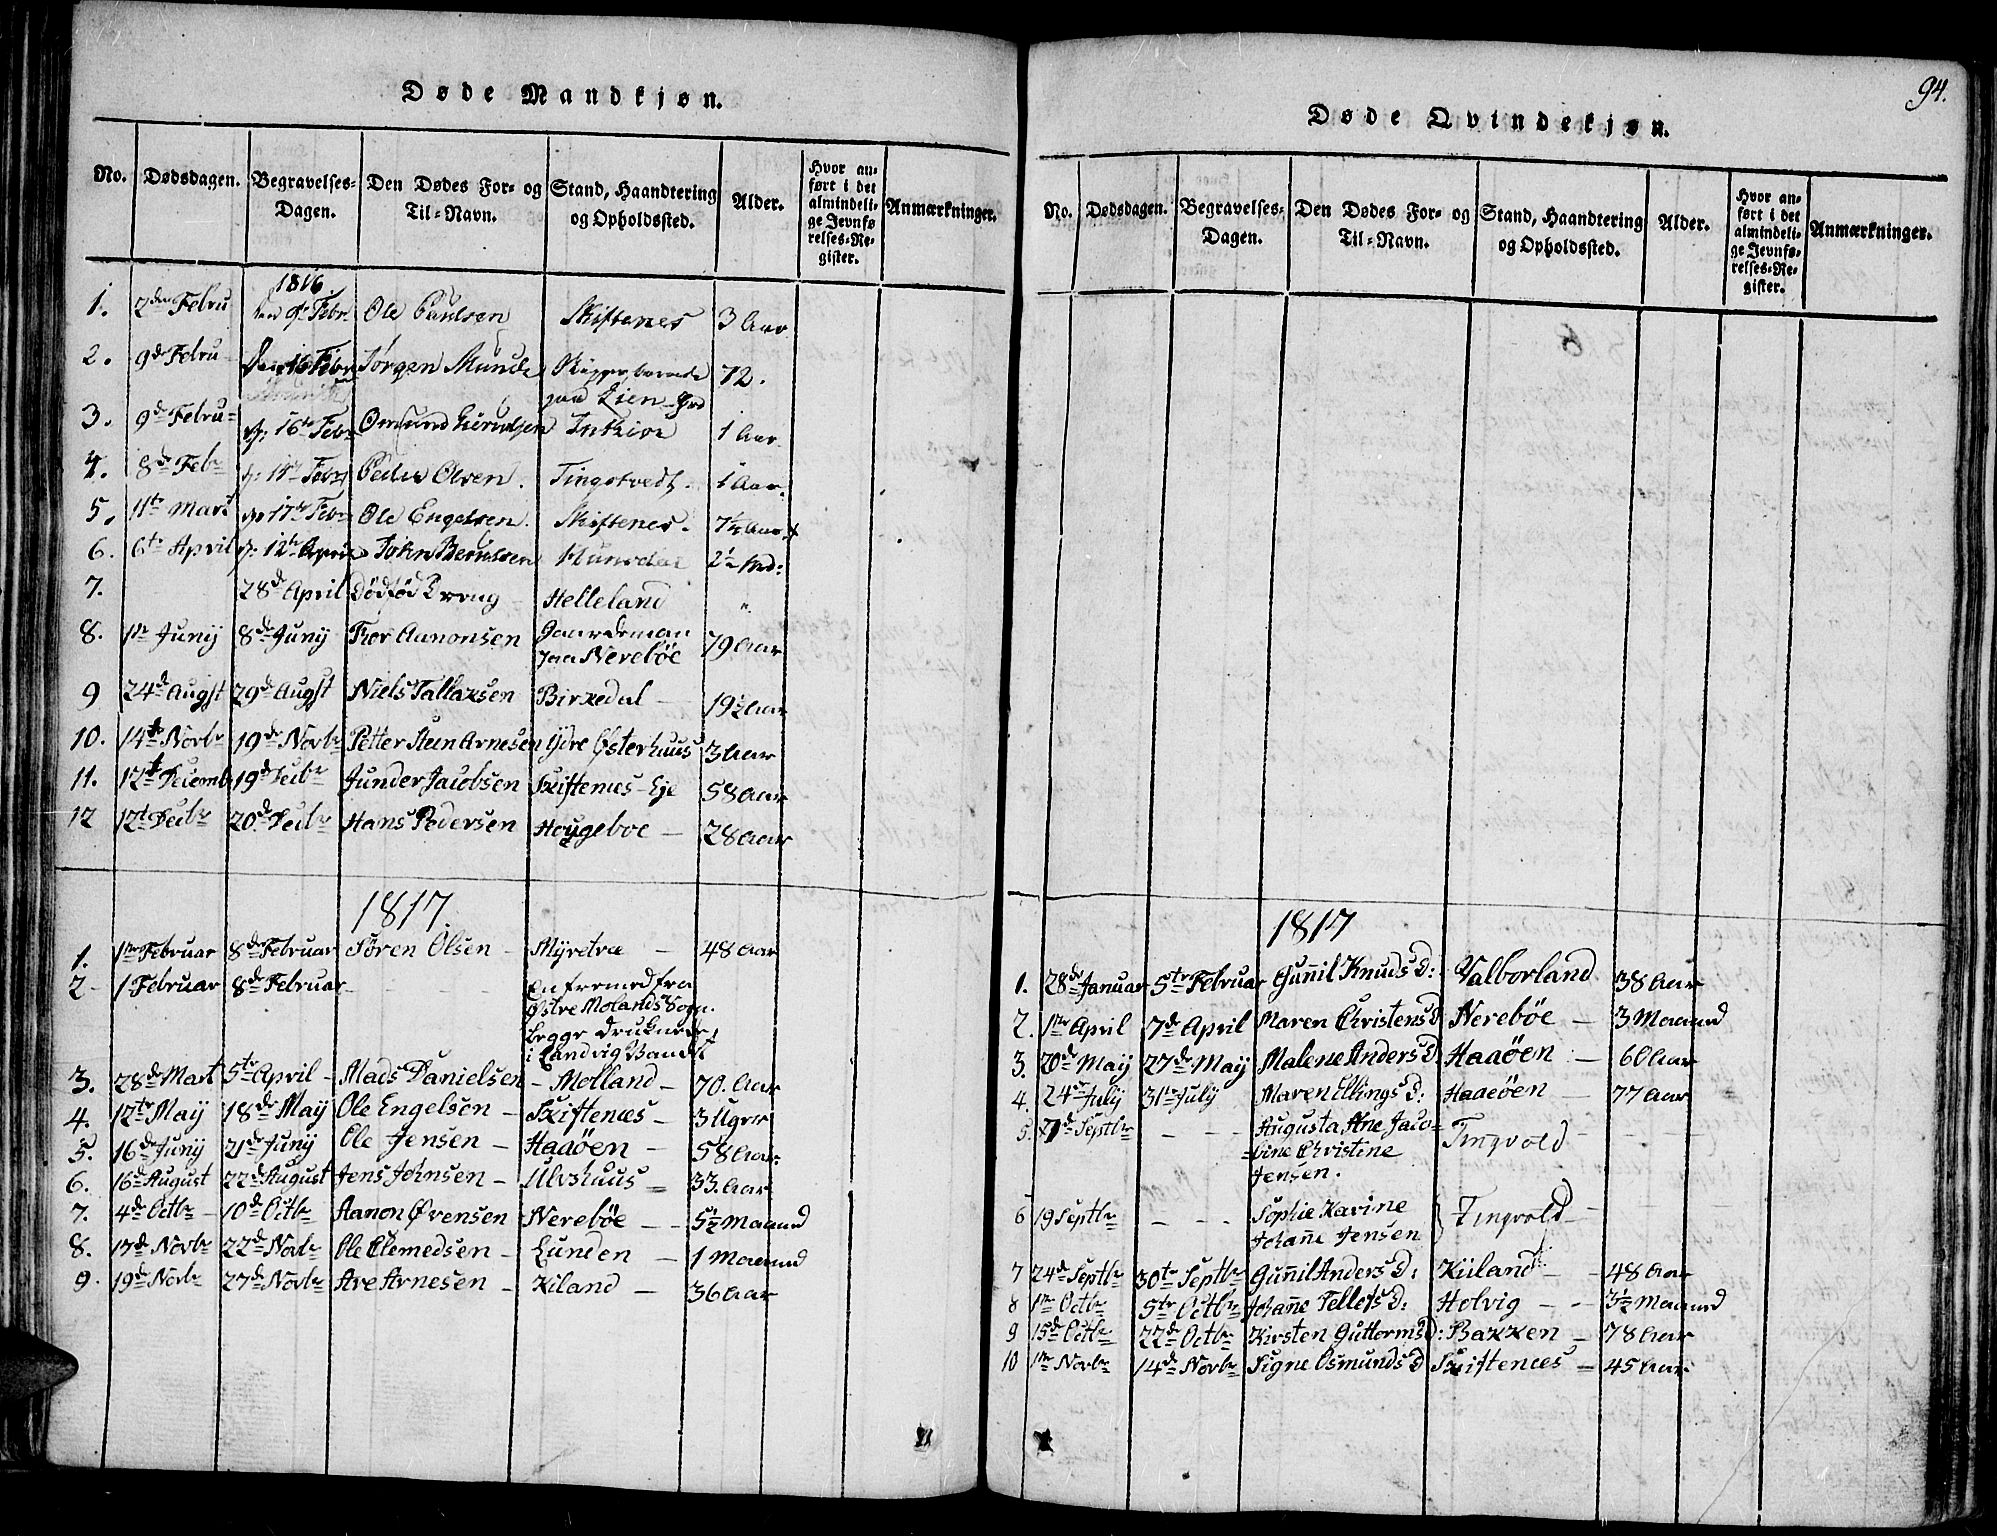 Døde Mandkjøn.
No. Dødsdagen. Begravelses-Dagen. Den Dødes For- og Til-Navn. Stand, Haandtering og Opholdssted. Alder. Hvor anført i det almindelige Jevnførelses-Register. Anmærkninger.
1816
1. 2den Febru Ole Paulsen Skiftenes 3 Aar
2. 9de Febru Jørgen Munde Lien 72.
3. 9de Febru 16te Febr 1 Aar
4. 8de Febr Peder Olsen. Tingstvedt. 1 Aar.
5. 11te Mart 17de Ole Engelsen. Skiftenes.
6. 6te April 12te April John Berntsen
7. 28de April Dödföd Dreng Helleland "
8. 1ste Junÿ 8de Junÿ Thor Aanonsen Gaardsman paa Nereböe 79 Aar
9 24de Augst 29de Augst Niels Tallaksen Birkedal — 19½ Aar
10. 14de Novbr 19de Novbr Petter Stein Arnesen Ydre Østerhuus 3 Aar
11. 12te Decemb 19de Decbr Gunder Jacobsen Skiftenæs-Eje 58 Aar
12 12te Decbr 20de Decbr Hans Pedersen Hougeboe — 28 Aar
1817.
1. 1ste Februar 8de Februar Sören Olsen — Mÿretræ — 48 Aar
2 - 1 Februar 8de Februar — — — En fremed fra
Østre Molands Sogn.
begge druknede
i Landvig Vandet
3. 28de Mart 5te April - Mads Danielsen - Molland - 70. Aar
4. 12te Maÿ 18de Maÿ Ole Engelsen - Skiftenæs - 3 Uger
5. 16de Junÿ 21de Junÿ Ole Jensen - Haaöen - 58 Aar.
6. 16de August 22de August Jens Johnsen - Ulvshuus - 33. Aar
7. 4de Octbr 10de Octbr Aanon Övensen Nereböe - - 5½ Maaned
8. 17de Novbr 22de Novbr Ole Clemedsen - Lunden - 1 Maaned
9. 19de Novbr 27de Novbr Are Arnesen - Kiland - 36 Aar
94.
Døde Qvindekjøn.
No. Dødsdagen. Begravelses-Dagen. Den Dødes For- og Til-Navn. Stand, Haandtering og Opholdssted. Alder. Hvor anført i det almindelige Jevnførelses-Register. Anmærkninger.
1817
1. 28de Januar 5te Februar Gunnil Knuds D: Valborland 38 Aar
2. 1ste April 7de April Maren Christens D Nereböe — 3 Maaned
3. 20de Maÿ 27de Maÿ Malene Anders D. Haaöen — 60 Aar
4. 24de Julÿ 31te Julÿ Maren Ellings D: Haaeöen — 77 Aar
5. 21de Septbr — — — Augusta Ane Jaco-
bine Christine
Jensen. Tingvold — — —
6 19 Septbr — — — Sophie Karine
Johanne Jensen } Tingvold —
7 24de Septbr 30te Septbr Gunnil Anders D: Kiiland — - 48 Aar
8 1ste Octbr 5te Octbr Johanne Tellefs D: Holvig — - 3½ Maaned
9 15de Octbr 22de Octbr Kirsten Guttorms D: Bakken — 78 Aar
10 1ste Novbr 14de Novbr Signe Osmunds D Skiftenæs — 45 Aar